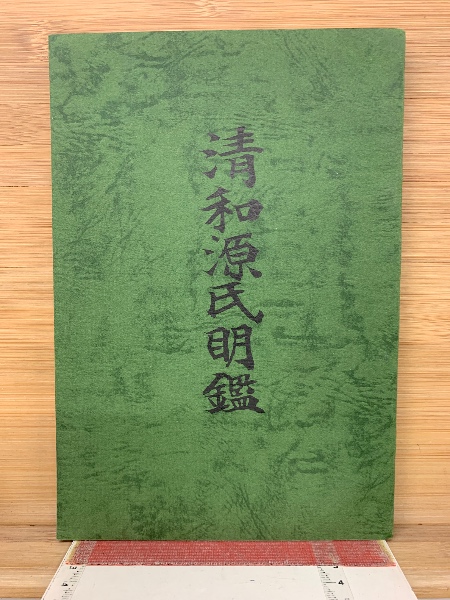 清和源氏明鑑